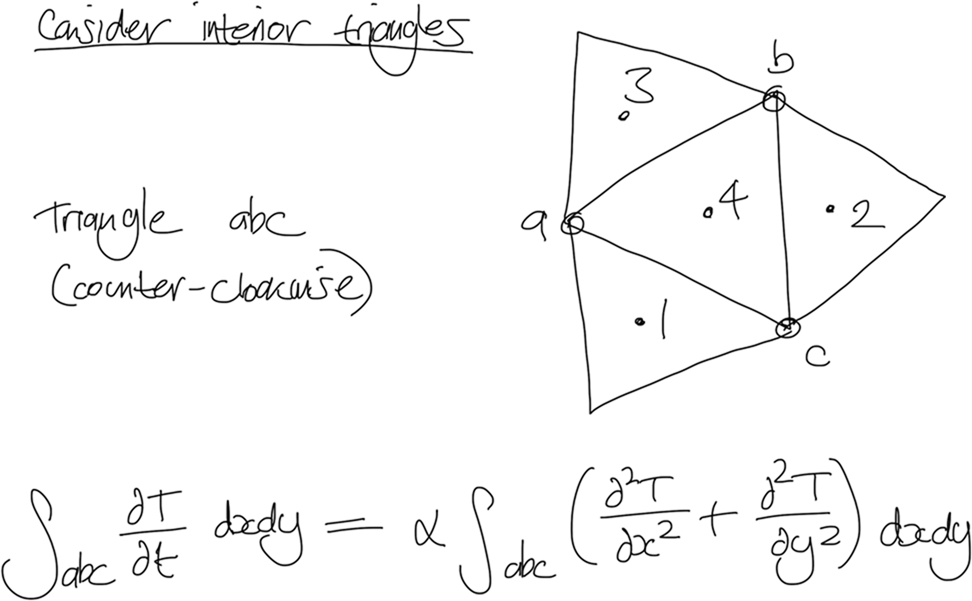 Consider interior triangles
b
3
a
4
2
Triangle abc
(counter-clockwise)
1
c
∫abc ∂T/∂t dxdy = α ∫abc (∂²T/∂x² + ∂²T/∂y²) dxdy